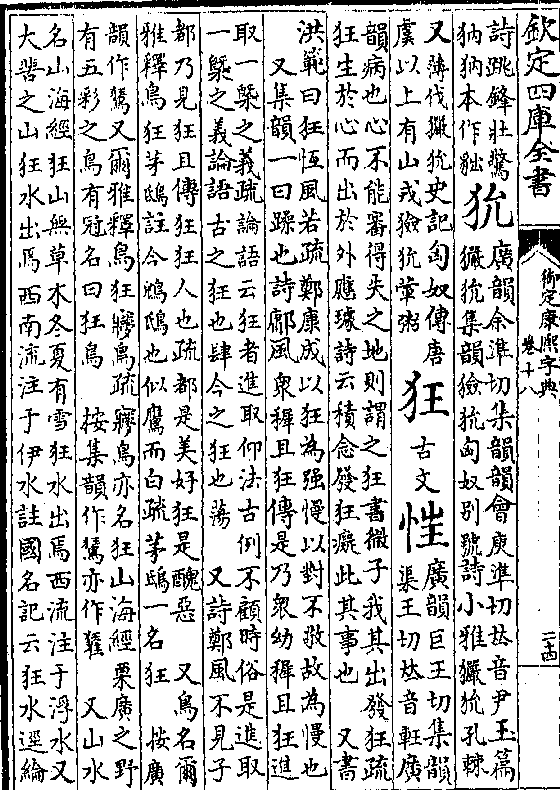 欽定四庫全書
御定康熙字典
卷十八
二十四
詩跳鋒壯驚
㹨㹨本作䶄
狁
廣韻余準切集韻韻會庾準切𠀤音尹玉篇
玁狁集韻獫狁匈奴别號詩小雅玁狁孔棘
又薄伐玁狁史記匈奴傳唐
虞以上有山戎獫狁葷粥
狂
古文
㤮
廣韻巨王切集韻
渠王切𠀤音軖廣
韻病也心不能審得失之地則謂之狂書微子我其出發狂疏
狂生於心而出於外應璩詩云積念發狂癡此其事也 又書
洪範曰狂恆風若疏鄭康成以狂為强慢以對不敬故為慢也
又集韻一曰躁也詩鄘風衆穉且狂傳是乃衆幼穉且狂進
取一槩之義疏論語云狂者進取仰法古例不顧時俗是進取
一槩之義論語古之狂也肆今之狂也蕩 又詩鄭風不見子
都乃見狂且傳狂狂人也疏都是美好狂是醜惡 又鳥名爾
雅釋鳥狂茅鴟註今鵵鴟也似鷹而白疏茅鴟一名狂 按廣
韻作鵟又爾雅釋鳥狂㝱鳥疏㝱鳥亦名狂山海經栗廣之野
有五彩之鳥有冠名曰狂鳥 按集韻作鵟亦作𪁗 又山水
名山海經狂山無草木冬夏有雪狂水出焉西流注于浮水又
大𩇯之山狂水出焉西南流注于伊水註國名記云狂水逕綸